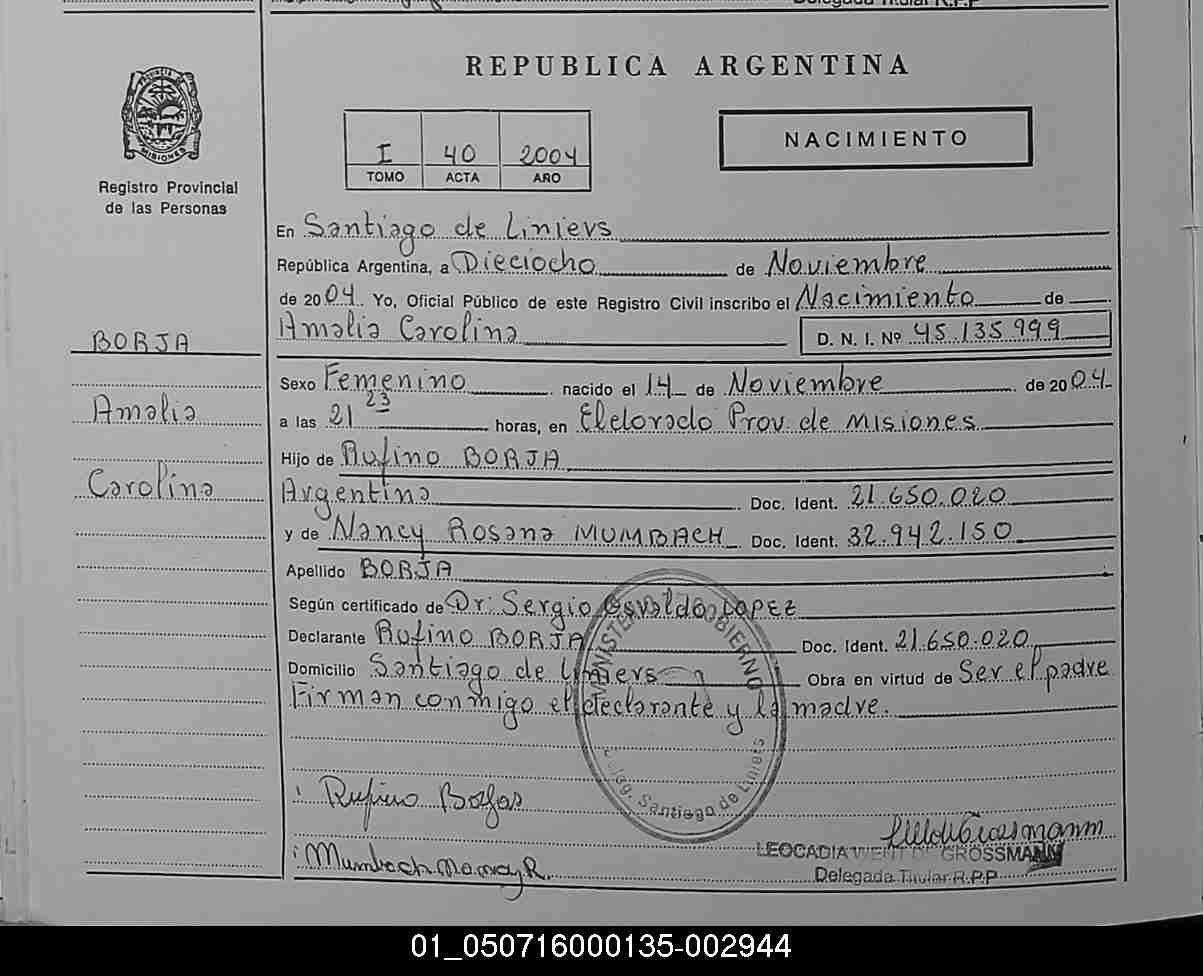 Delegada Titular R.P.P
REPUBLICA ARGENTINA
PROVINCIA DE
MISIONES
Registro Provincial
de las Personas
I 40 2004
TOMO ACTA AÑO
NACIMIENTO
En Santiago de Liniers
República Argentina, a Dieciocho de Noviembre
de 2004. Yo, Oficial Público de este Registro Civil inscribo el Nacimiento de
Amalia Carolina D. N. I. Nº 45.135.999
BORJA
Amalia
Carolina
Sexo Femenino nacido el 14 de Noviembre de 2004
a las 21 23 horas, en Eldorado Prov. de Misiones
Hijo de Rufino BORJA
Argentina Doc. Ident. 21.650.020
y de Nancy Rosana MUMBACH Doc. Ident. 32.942.150
Apellido BORJA
Según certificado de Dr. Sergio Osvaldo LOPEZ
Declarante Rufino BORJA Doc. Ident. 21.650.020
Domicilio Santiago de Liniers Obra en virtud de Ser el padre
Firman conmigo el declarante y la madre.
MINISTERIO DE GOBIERNO
Santiago de Liniers
Rufino Borjas
Mumbach Nancy R.
LEOCADIA WENT DE GROSSMANN
Delegada Titular R.P.P
01_050716000135-002944